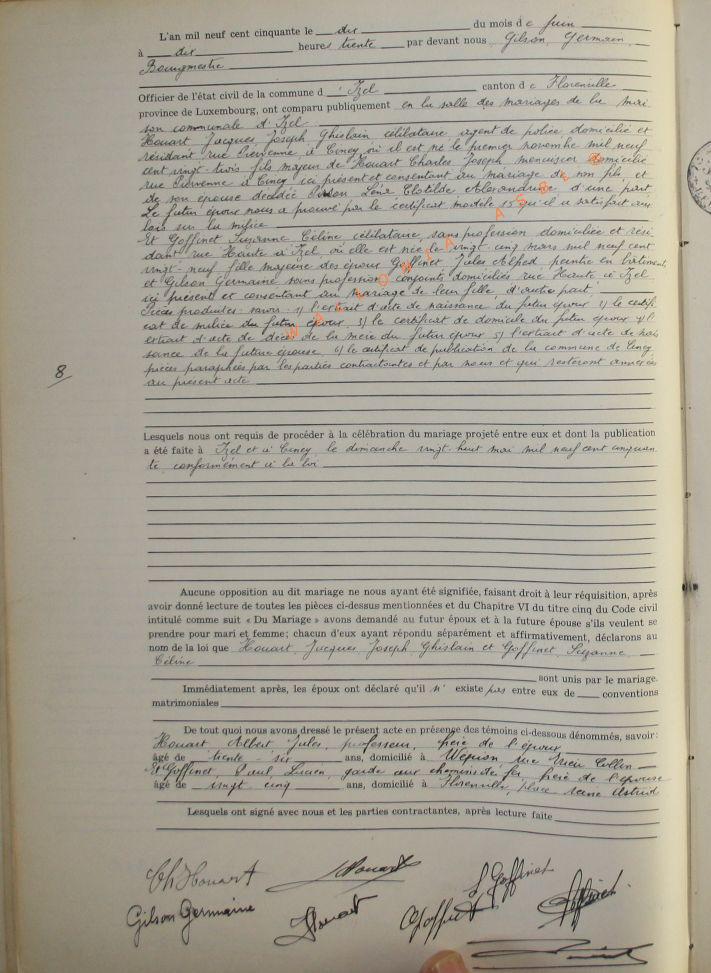 L'an mil neuf cent cinquante le dix du mois de juin
à dix heures trente par devant nous Gilson, Germain,
Bourgmestre
Officier de l'état civil de la commune d'Izel canton de Florenville
province de Luxembourg, ont comparu publiquement en la salle des mariages de la mai
son communale d'Izel
Houart Jacques Joseph Ghislain célibataire agent de police domicilié et
résidant rue Piervenne à Ciney où il est né le premier novembre mil neuf
cent vingt trois fils majeur de Houart Charles Joseph menuisier domicilié
rue Piervenne à Ciney ici présent et consentant au mariage de son fils, et
de son épouse décédée Léna Clotilde Alexandrine d'une part
Le futur époux nous a prouvé par le certificat modèle 15 qu'il a satisfait aux
lois sur la milice
Et Goffinet Suzanne Céline célibataire sans profession domiciliée et rési
dant rue Haute à Izel où elle est née le vingt cinq mars mil neuf cent
vingt-neuf fille majeure des époux Goffinet Jules Alfred peintre en bâtiments
et Gilson Germaine sans profession conjoints domiciliés rue Haute à Izel
ici présent et consentant au mariage de leur fille d'autre part
Pièces produites savoir: 1) l'extrait d'acte de naissance du futur époux 2) le certifi
cat de milice du futur époux, 3) le certificat de domicile du futur époux 4) l'
extrait d'acte de décès de la mère du futur époux 5) l'extrait d'acte de nais
sance de la future épouse, 6) le certificat de publication de la commune de Ciney,
pièces paraphées par les parties contractantes et par nous et qui resteront annexées
au présent acte
8
WALLONIA ASBL
Lesquels nous ont requis de procéder à la célébration du mariage projeté entre eux et dont la publication
a été faite à Izel et à Ciney le dimanche vingt-huit mai mil neuf cent cinquan
te conformément à la loi
Aucune opposition au dit mariage ne nous ayant été signifiée, faisant droit à leur réquisition, après
avoir donné lecture de toutes les pièces ci-dessus mentionnées et du Chapitre VI du titre cinq du Code civil
intitulé comme suit « Du Mariage » avons demandé au futur époux et à la future épouse s'ils veulent se
prendre pour mari et femme; chacun d'eux ayant répondu séparément et affirmativement, déclarons au
nom de la loi que Houart, Jacques Joseph Ghislain et Goffinet, Suzanne
Céline
sont unis par le mariage.
Immédiatement après, les époux ont déclaré qu'il n'existe pas entre eux de conventions
matrimoniales
De tout quoi nous avons dressé le présent acte en présence des témoins ci-dessous dénommés, savoir:
Houart Albert Jules, professeur, frère de l'époux
âgé de trente-six ans, domicilié à Wépion rue Collin
Et Goffinet, Paul, Lucien, garde aux chemins de fer, frère de l'épouse
âgé de vingt cinq ans, domicilié à Florenville, place reine Astrid
Lesquels ont signé avec nous et les parties contractantes, après lecture faite
Ch Houart
Houart
S Goffinet
Gilson Germaine
Houart
Goffinet